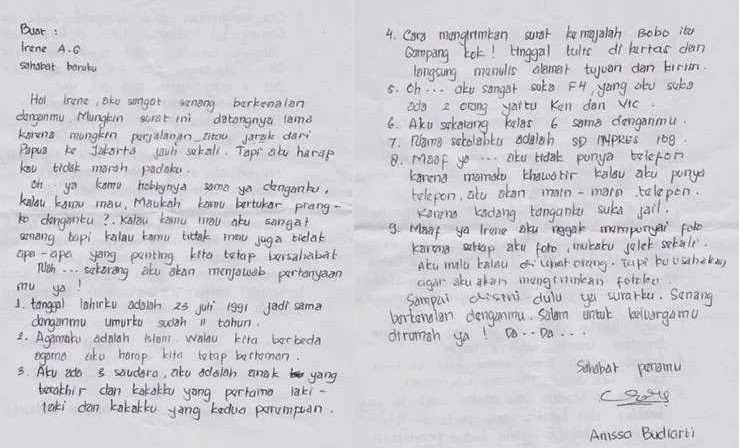 Buat :
Irene A.G
sahabat baruku
Hai Irene, aku sangat senang berkenalan
denganmu. Mungkin surat ini datangnya lama
karena mungkin perjalanan atau jarak dari
Papua ke Jakarta jauh sekali. Tapi aku harap
kau tidak marah padaku.
Oh .. ya kamu hobbynya sama ya denganku,
kalau kamu mau, Maukah kamu bertukar prang-
ko denganku ?. Kalau kamu mau aku sangat
senang tapi kalau kamu tidak mau juga tidak
apa-apa yang penting kita tetap bersahabat
Nah ... sekarang aku akan menjawab pertanyaan
mu ya !
1. tanggal lahirku adalah 23 juli 1991 jadi sama
denganmu umurku sudah 11 tahun.
2. Agamaku adalah islam. walau kita berbeda
agama aku harap kita tetap berteman.
3. Aku ada 3 saudara, aku adalah anak yang
terakhir dan kakakku yang pertama laki-
laki dan kakakku yang kedua perempuan.
4. Cara mengirimkan surat ke majalah Bobo itu
Gampang kok! tinggal tulis di kertas dan
langsung menulis alamat tujuan dan kirim.
5. Oh ... aku sangat suka F4, yang aku suka
ada 2 orang yaitu Ken dan Vic.
6. Aku sekarang kelas 6 sama denganmu.
7. Nama sekolahku adalah SD INPRES 109.
8. Maaf ya ... aku tidak punya telepon
karena mamaku khawatir kalau aku punya
telepon, aku akan main-main telepon.
Karena kadang tanganku suka jail.
9. Maaf ya Irene aku nggak mempunyai foto
karena setiap aku foto, mukaku jelek sekali.
Aku malu kalau dilihat orang. Tapi ku usahakan
agar aku akan mengirimkan fotoku.
Sampai disini dulu ya suratku. Senang
berkenalan denganmu. Salam untuk keluargamu
dirumah ya ! Da .. Da ...
Sahabat penamu
Anissa Budiarti